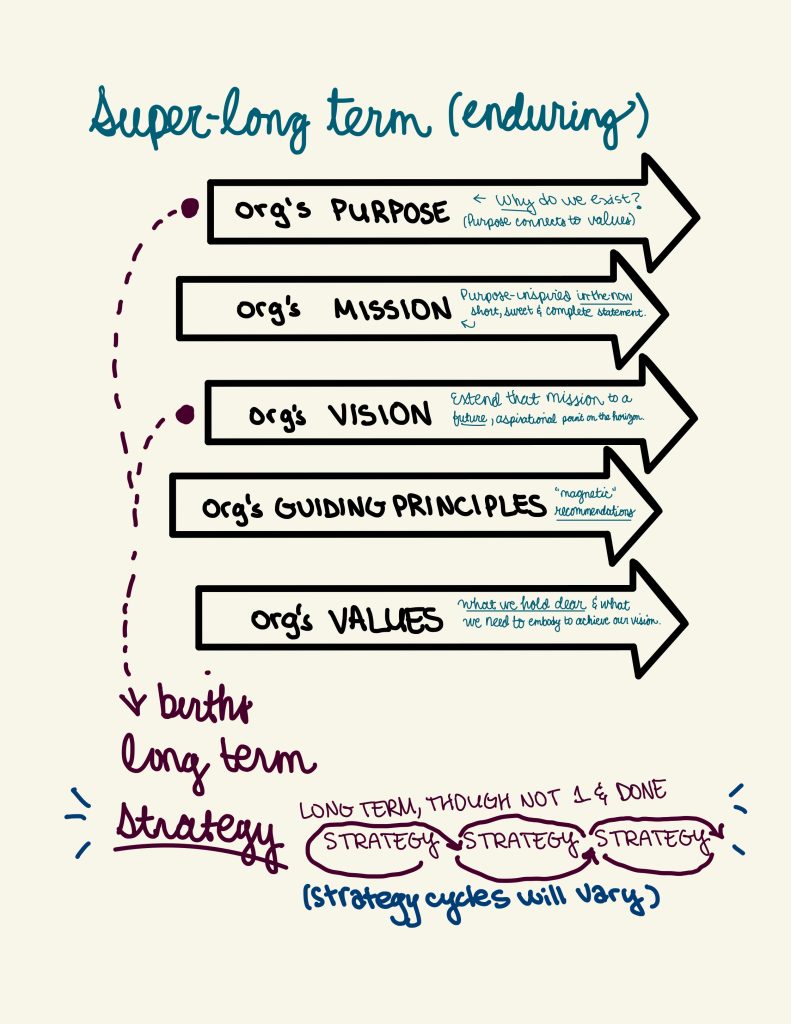 Super-long term (enduring)
org's PURPOSE
← Why do we exist?
(Purpose connects to values)
org's MISSION
Purpose-inspired in-the-now
short, sweet & complete statement.
org's VISION
Extend that mission to a
future, aspirational point on the horizon.
org's GUIDING PRINCIPLES
"magnetic"
recommendations
org's VALUES
What we hold dear & what
we need to embody to achieve our vision.
births
long term
strategy
LONG TERM, THOUGH NOT 1 & DONE
STRATEGY STRATEGY STRATEGY
(strategy cycles will vary)